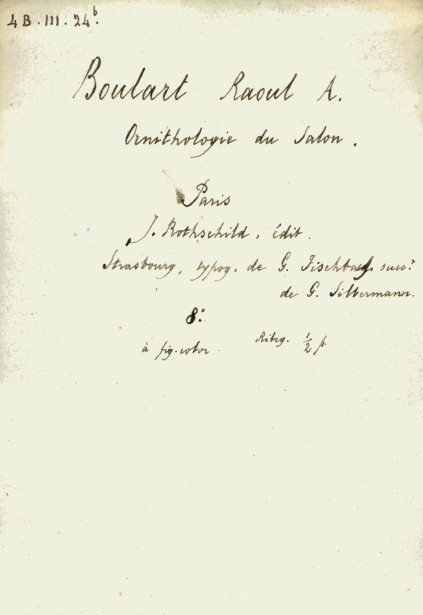 4 B. III. 24b.
Boulart Raoul A.
Ornithologie du Salon.
Paris
J. Rothschild, édit.
Strasbourg, typog. de G. Fischbach, succ.r
de G. Silbermann.
8.°
à fig. color. Rileg. ½ p.